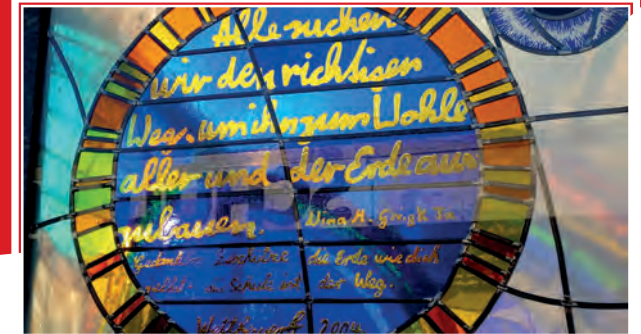 Alle suchen
wir den richtigen
Weg, um ihn zum Wohle
aller und der Erde aus
zubauen. Nina H.
die Erde wie dich
der Weg.
Wettbewerb 2004